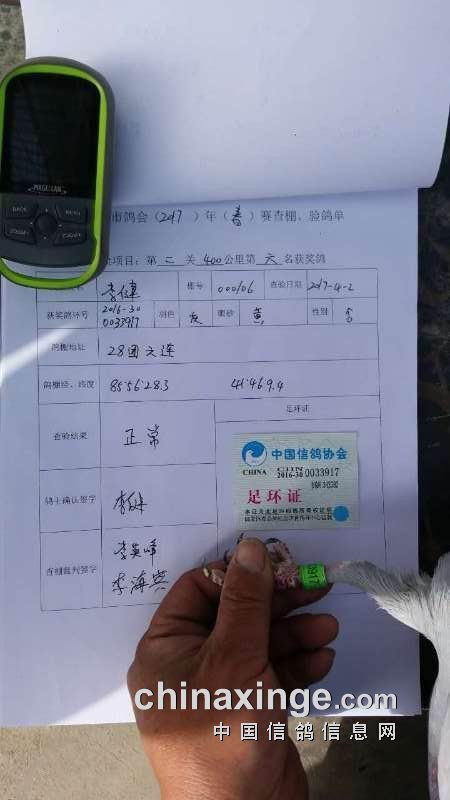 MAGELLAN
BACK
MENU
ZOOM-
ZOOM+
市鸽会（2017）年（春）赛查棚、验鸽单
项目：第二关400公里第六名获奖鸽
李健
棚号
000106
查验日期
2017-4-2
获奖鸽环号
2016-30
0033917
羽色
灰
眼砂
黄
性别
鸽棚地址
28团六连
鸽棚经、纬度
85:56:28.3
41:46 9.4
足环证
查验结果
正常
中国信鸽协会
CHINA
CHN
2016-30 0033917
足环证
鸽主确认签字
李健
查棚裁判签字
李英峰
李海宾
chinaxinge.com
中国信鸽信息网